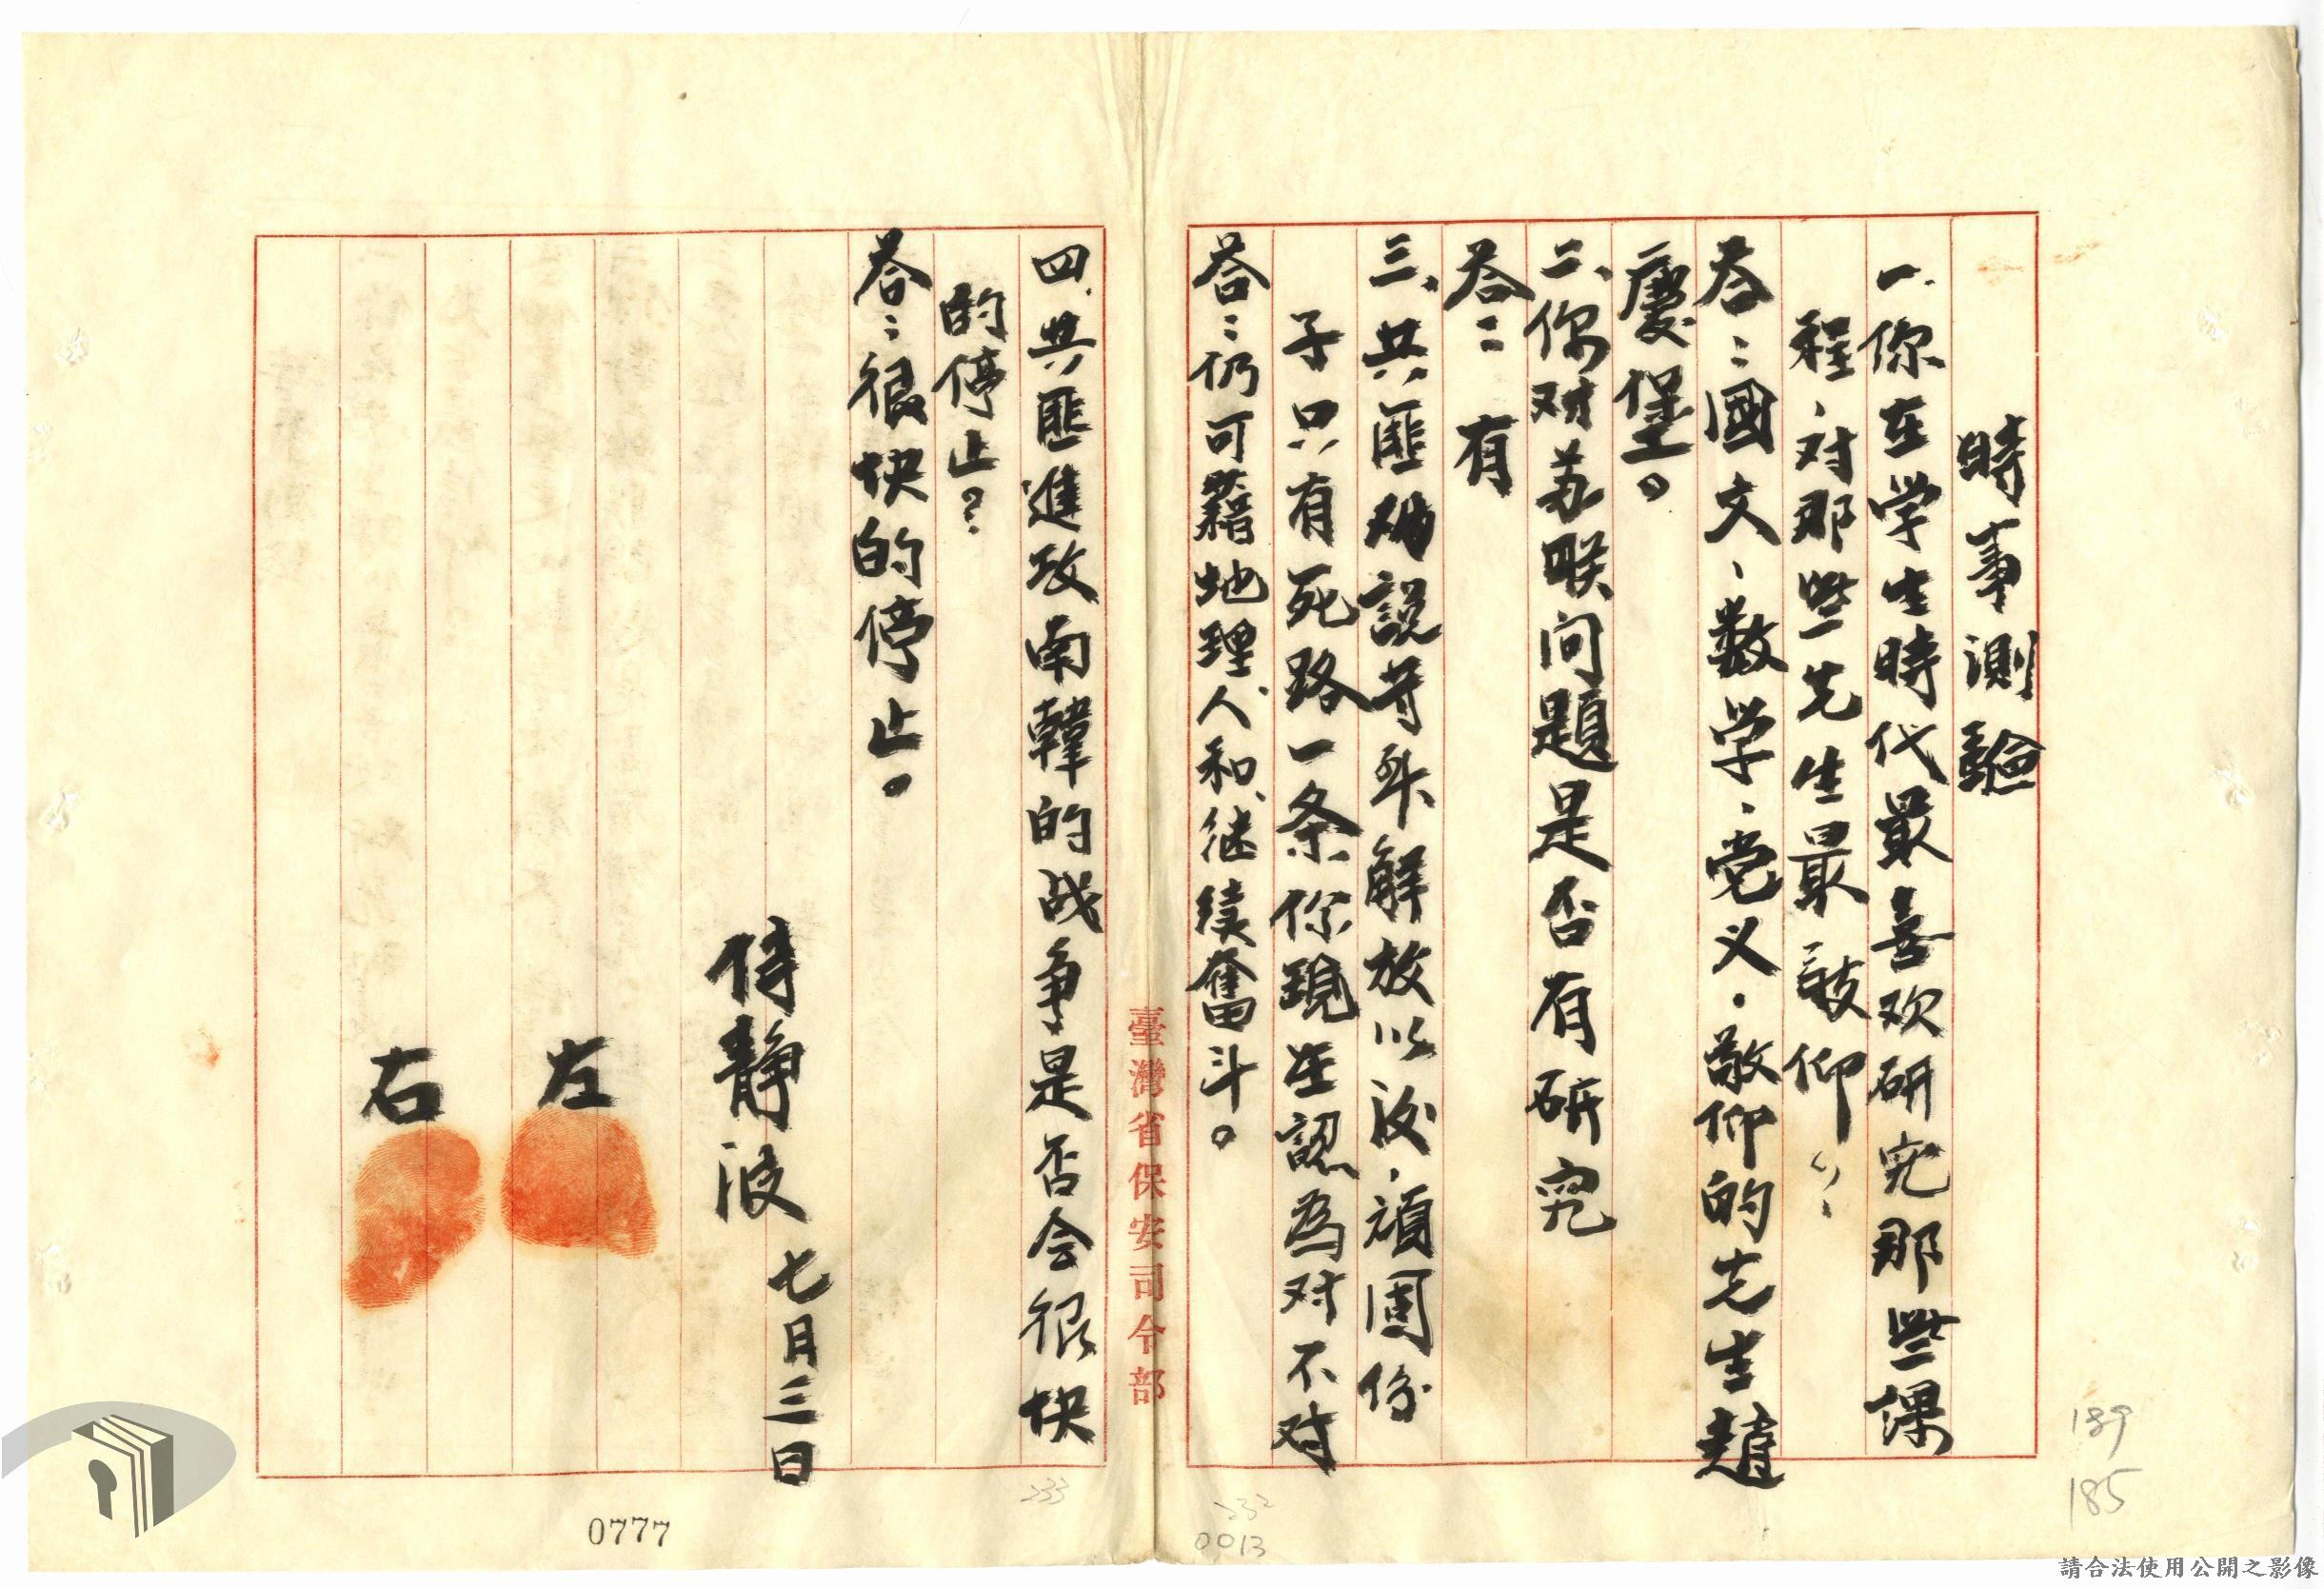 時事測驗
一.你在学生時代最喜欢研究那些課
程、对那些先生最敬仰?
答:國文、数学、党义.敬仰的先生趙
慶堡。
二、你对苏联问題是否有研究
答:有
三、共匪説解放以後,頑固份
子只有死路一条你現在認為对不对
答:仍可藉地理、人和、继续奮斗。
臺灣省保安司令部
四.共匪進攻南韓的战争是否会很快
的停止?
答:很快的停止。
七月三日
侍静波
左
右
189
185
232
0013
233
0777
請合法使用公開之影像